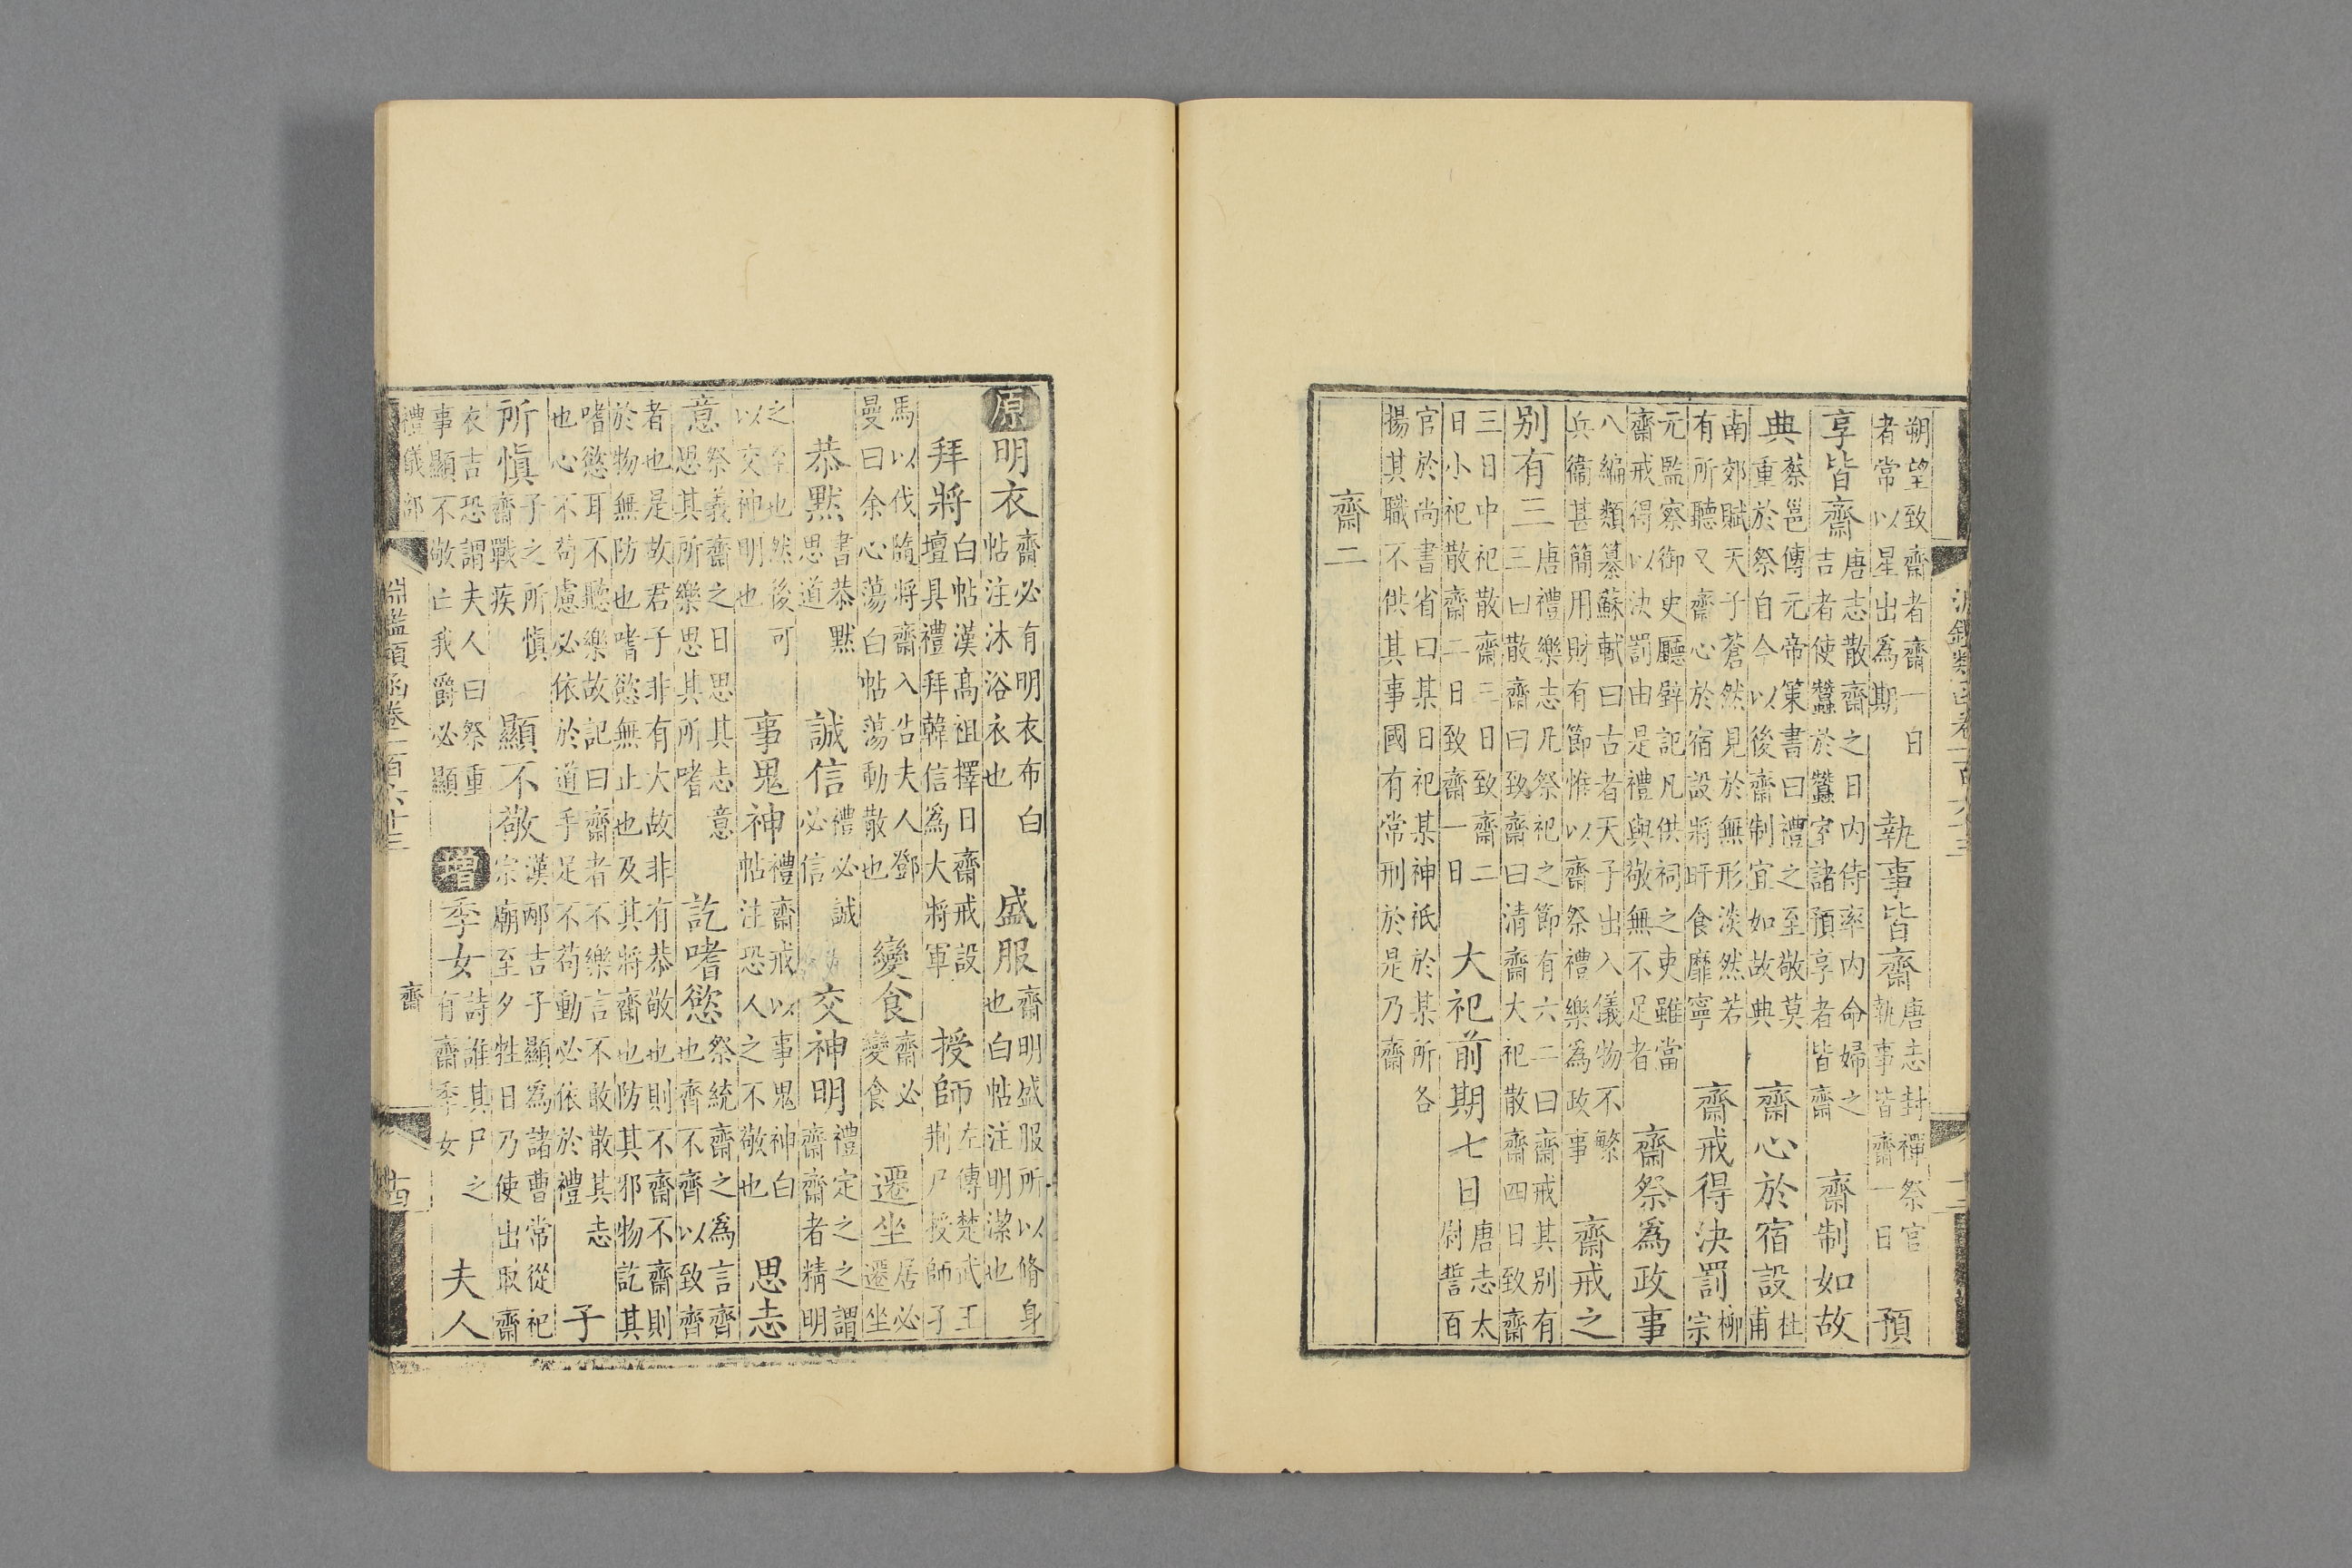 淵鑑類函卷一百六十三
朔望致齋者齋一日者常以星出爲期 執事皆齋唐志封禪祭官執事皆齋一日 預
享皆齋唐志散齋之日内侍率内命婦之吉者使蠶於蠶室諸預享者皆齋 齋制如故
典蔡邕傳元帝策書曰禮之至敬莫重於祭自今以後齋制宜如故典 齋心於宿設杜甫
南郊賦天子蒼然見於無形淡然若有所聽又齋心於宿設將旰食靡寧 齋戒得決罰柳宗
元監察御史廳壁記凡供祠之吏雖當齋戒得以決罰由是禮與敬無不足者 齋祭爲政事
八編類纂蘇軾曰古者天子出入儀物不繁兵衞甚簡用財有節惟以齋祭禮樂爲政事 齋戒之
别有三唐禮樂志凡祭祀之節有六二曰齋戒其别有三三曰散齋曰致齋曰清齋大祀散齋四日致齋
三日中祀散齋三日致齋二日小祀散齋二日致齋一日 大祀前期七日唐志太尉誓百
官於尚書省曰某日祀某神祇於某所各揚其職不供其事國有常刑於是乃齋
齋二
原明衣齋必有明衣布白帖注沐浴衣也 盛服齋明盛服所以脩身也白帖注明潔也
拜將白帖漢髙祖擇日齋戒設壇具禮拜韓信爲大將軍 授師左傳楚武王荆尸授師孑
馬以伐隨將齋入告夫人鄧曼曰余心蕩白帖蕩動散也 變食齋必變食 遷坐居必遷坐
恭默書恭默思道 誠信禮必誠必信 交神明禮定之之謂齋齋者精明
之至也然後可以交神明也 事鬼神禮齋戒以事鬼神白帖注恐人之不敬也 思志
意祭義齋之日思其志意思其所樂思其所嗜 訖嗜慾祭統齋之爲言齊也齊不齊以致齊
者也是故君子非有大故非有恭敬也則不齋不齋則於物無防也嗜慾無止也及其將齋也防其邪物訖其
嗜慾耳不聽樂故記曰齋者不樂言不敢散其志也心不苟慮必依於道手足不苟動必依於禮 子
所慎子之所慎齋戰疾 顯不敬漢邴吉子顯爲諸曹常從祀宗廟至夕牲日乃使出取齋
衣吉恐謂夫人曰祭重事顯不敬亡我爵必顯 增季女詩誰其尸之有齋季女 夫人
禮儀部 淵鑑類函卷一百六十三 齋 十四